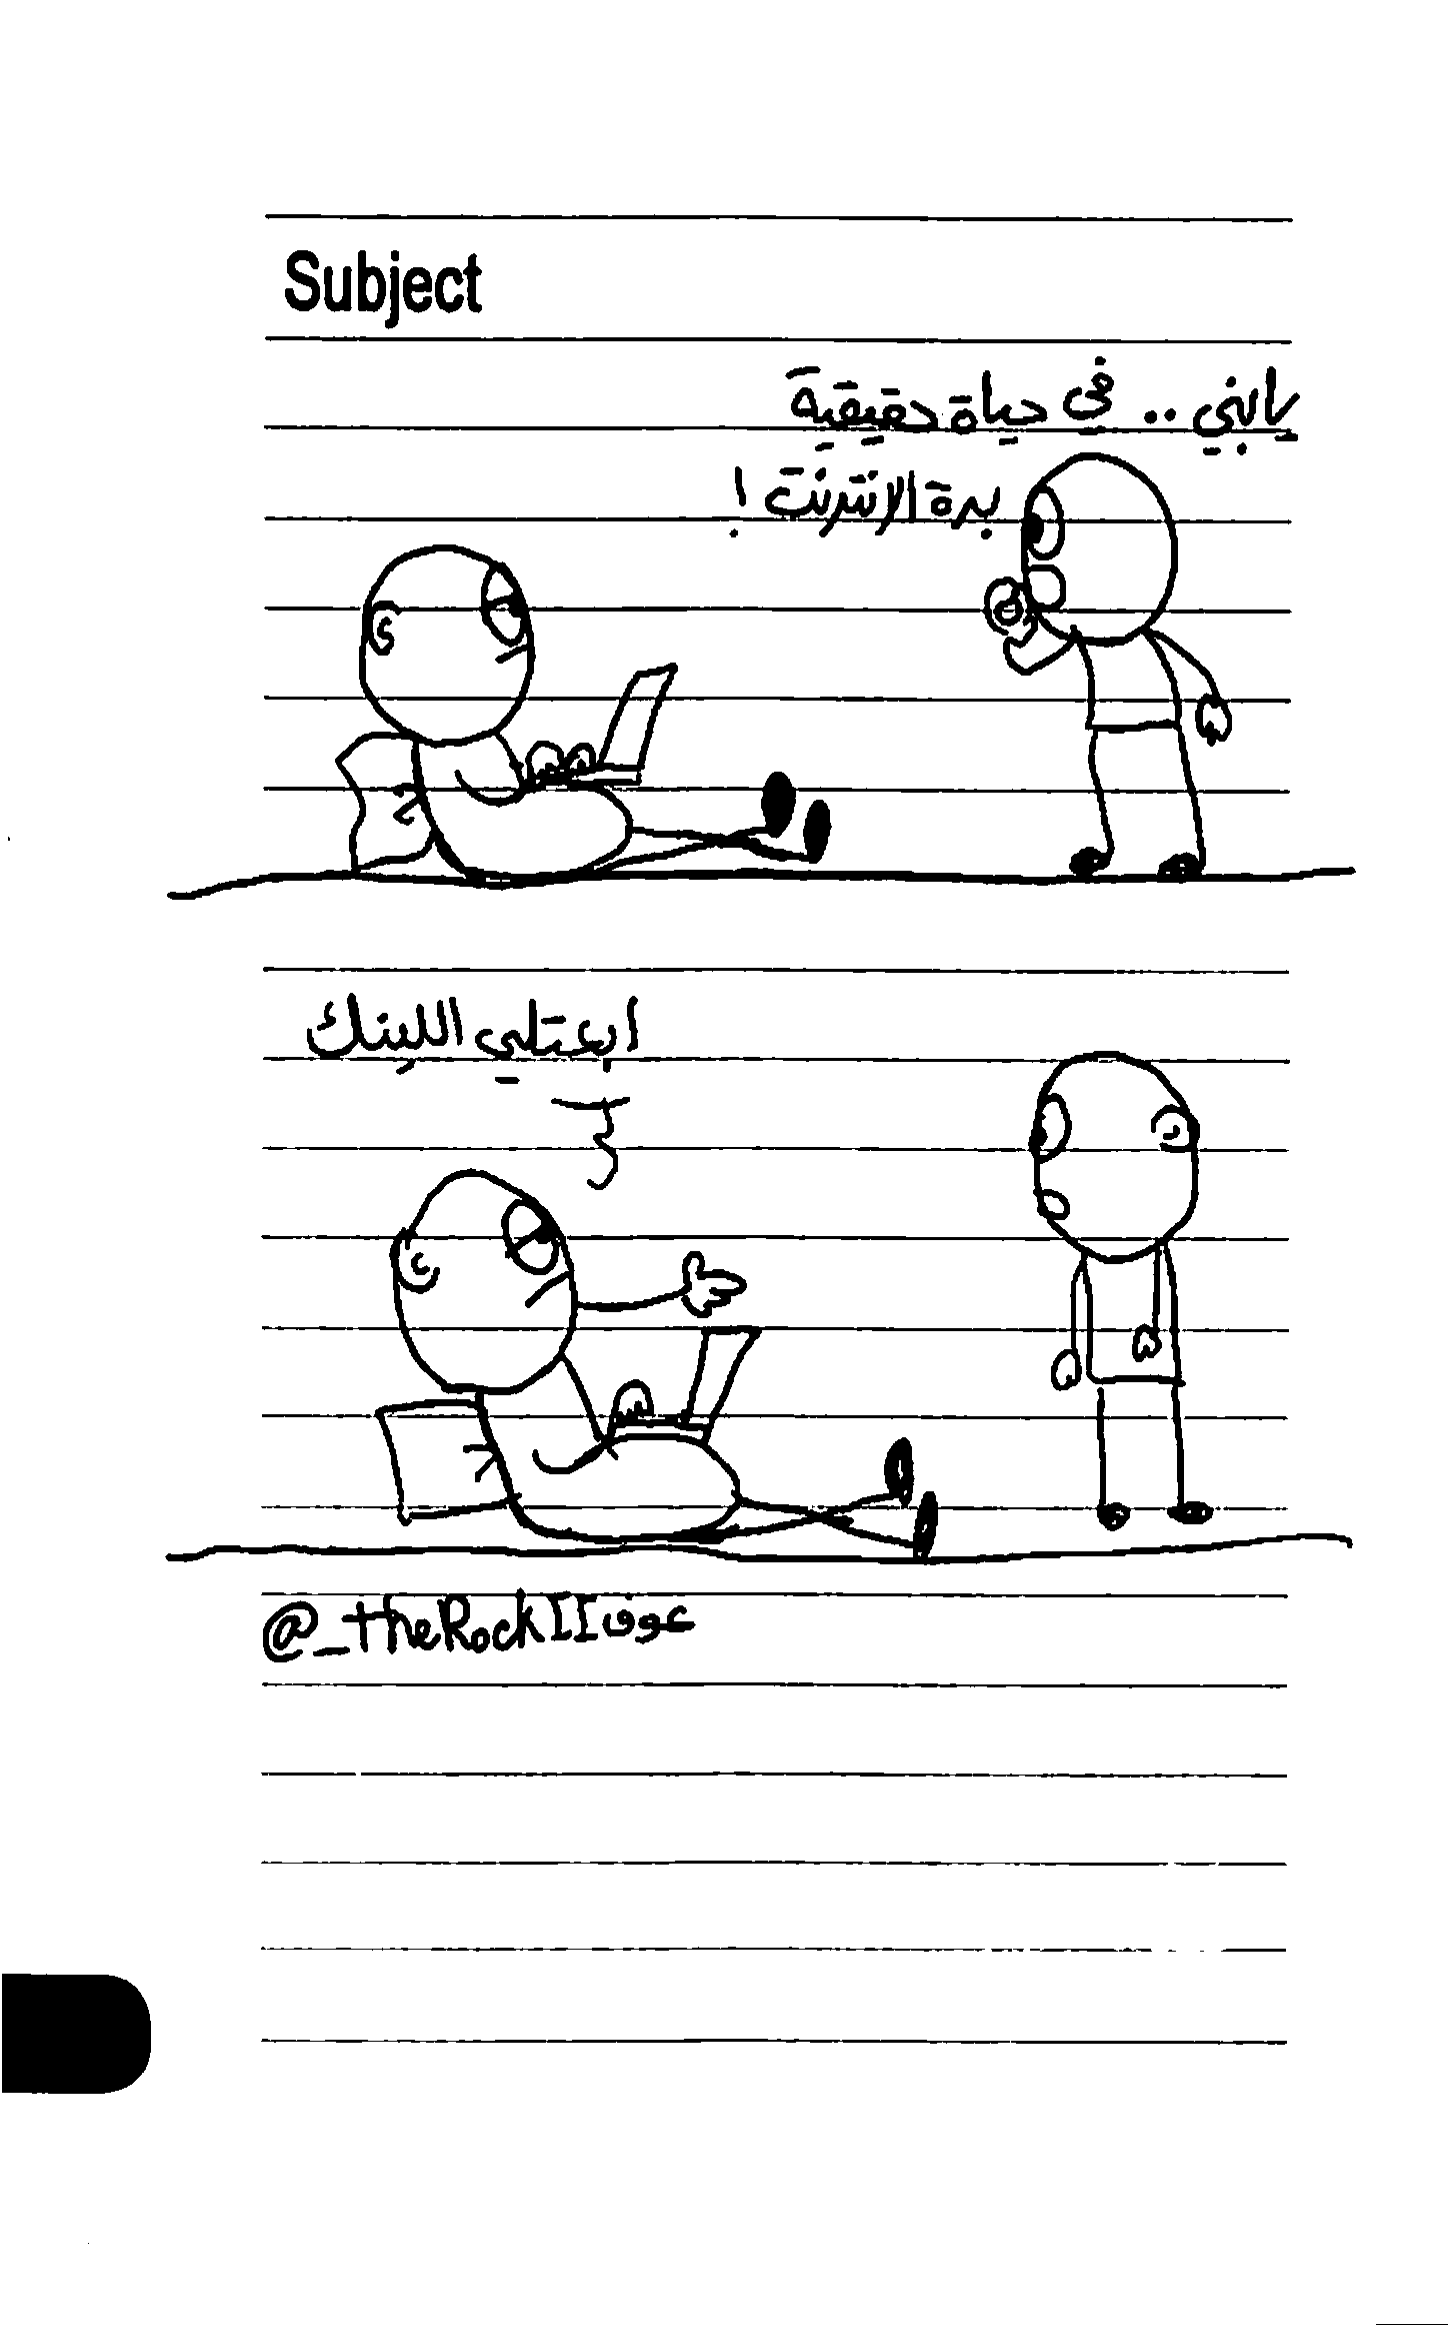 Subject
يابني .. في حياة حقيقية
برة الانترنت !
ابعتلي اللينك
@_theRockIIعوف